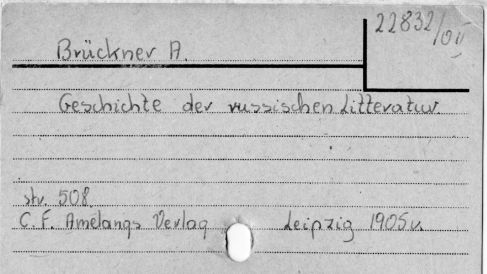 22832/
Brückner A.
Geschichte der russischen Litteratur.
str. 508.
C. F. Amelangs Verlag Leipzig 1905 r.